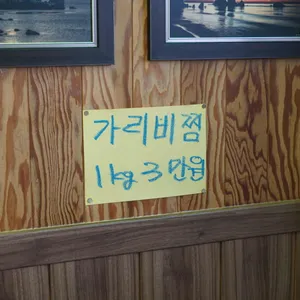 가리비찜
1kg 3만윤